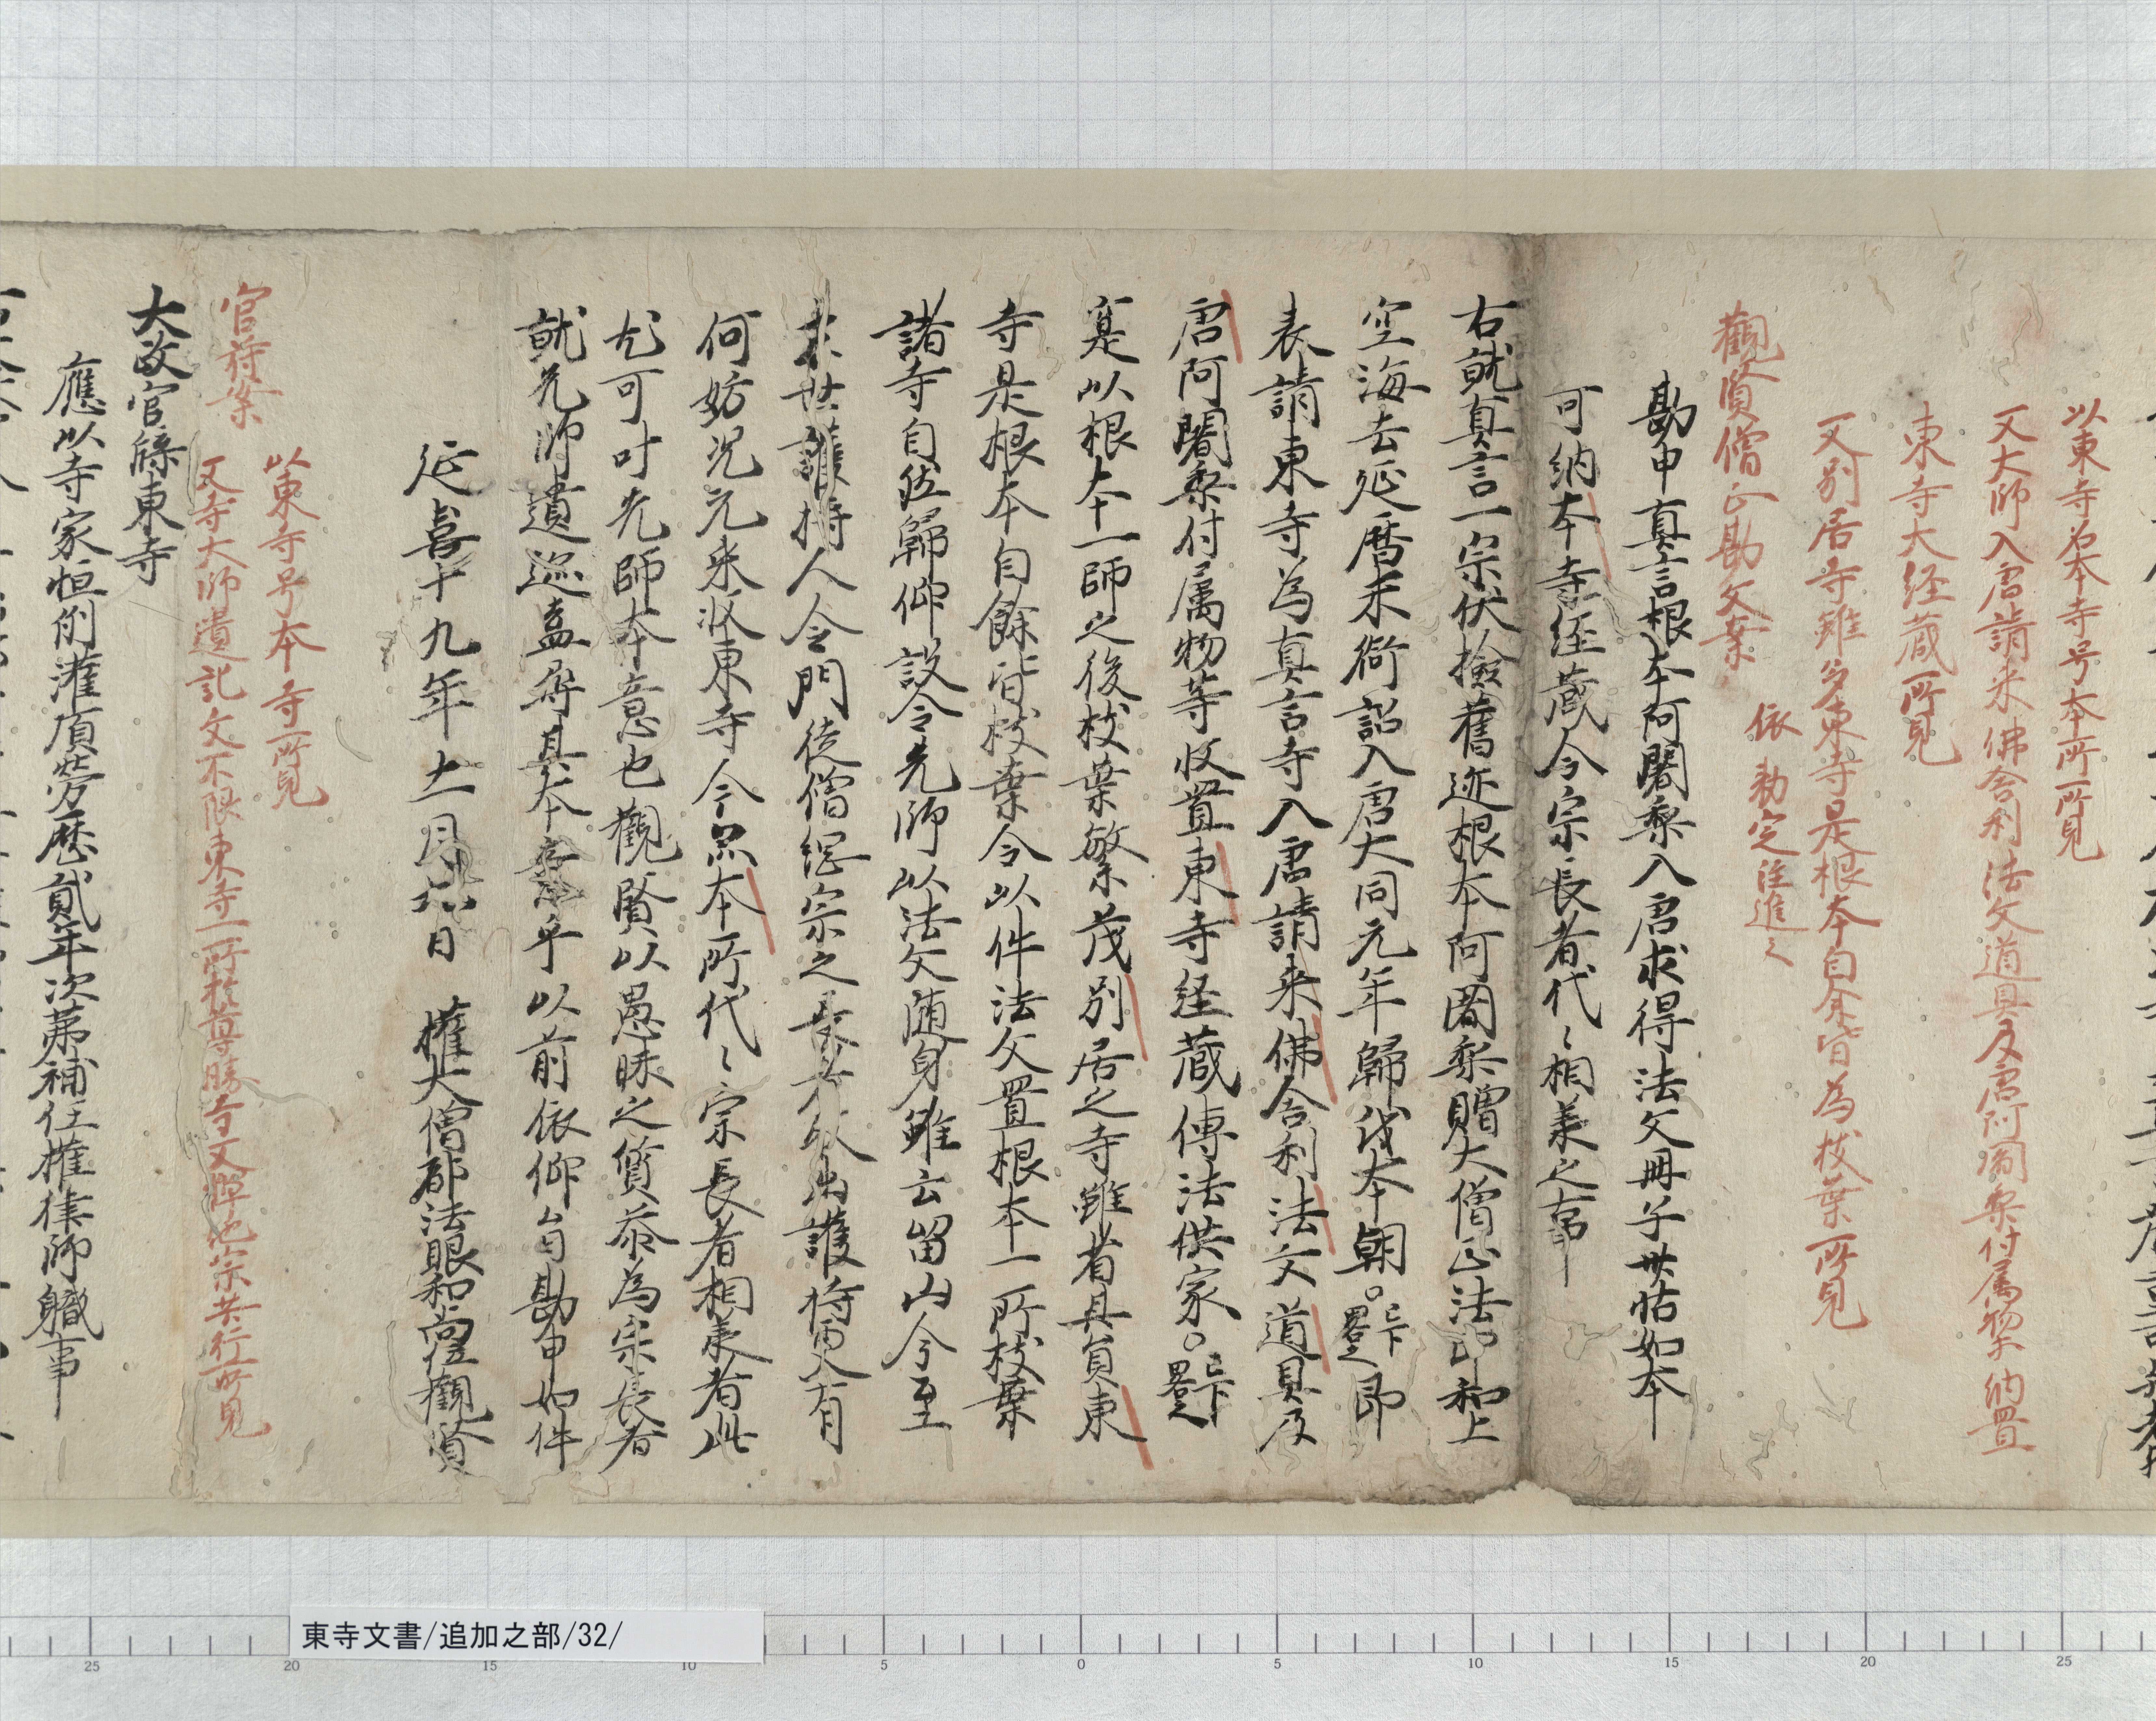 以東寺名本寺号本所所見
又大師入唐請来佛舎利法文道具及唐阿闍梨付属物等納置
東寺大経蔵所見
又別居寺雖多東寺是根本自余皆為枝葉所見
觀賢僧正勘文案
依勅定注進之
勘申真言根本阿闍梨入唐求得法文冊子卅帖如本
可納本寺経蔵令宗長者代〻相兼之事
右就真言一宗伏撿舊迹根本阿闍梨贈大僧正法印和上
空海去延暦末銜詔入唐大同元年歸我本朝。已下畧之即
表請東寺為真言寺入唐請来佛舎利法文道具及
唐阿闍梨付属物等收置東寺経蔵傳法供家。已下畧之
寔是以根本一師之後枝葉繁茂別居之寺雖有其員東
寺是根本自餘皆枝葉令以件法文置根本一所枝葉
諸寺自佐歸仰設令先師以法文随身雖云留山今至
末世護持人令門徒僧綱宗之長者取出護持更有
何妨况元来收東寺今点本所代〻宗長者相兼者此
尤可叶先師本意也觀賢以愚昧之質忝為宗長者
就先師遺迹盍尋其本意乎以前依仰旨勘申如件
延喜十九年十一月六日 權大僧都法眼和尚位觀賢
以東寺号本寺所見
官符案
又寺大師遺記文不限東寺一所於尊勝寺又渡他宗共行所見
大政官牒東寺
應以寺家恒例灌頂勞歴貳年次第補任權律師軄事
東寺文書/追加之部/32/
25 20 15 10 5 0 5 10 15 20 25